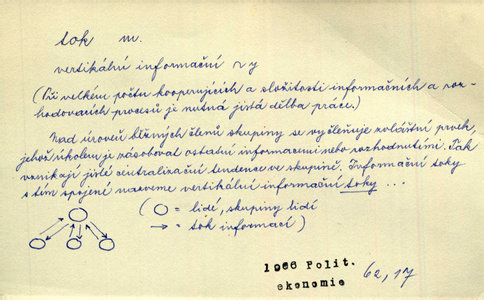 tok m.
vertikální informační ~y
(Při velkém počtu kooperujících a složitosti informačních a roz-
hodovacích procesů je nutná jistá dělba práce.)
Nad úroveň běžných členů skupiny se vyčleňuje zvláštní prvek,
jehož úkolem je zásobovat ostatní informacemi nebo rozhodnutími. Tak
vznikají jisté centralizační tendence ve skupině. Informační toky
s tím spojené nazveme vertikální informační toky ...
(○ = lidé, skupiny lidí
→ = tok informací)
1966 Polit.
ekonomie
62, 17